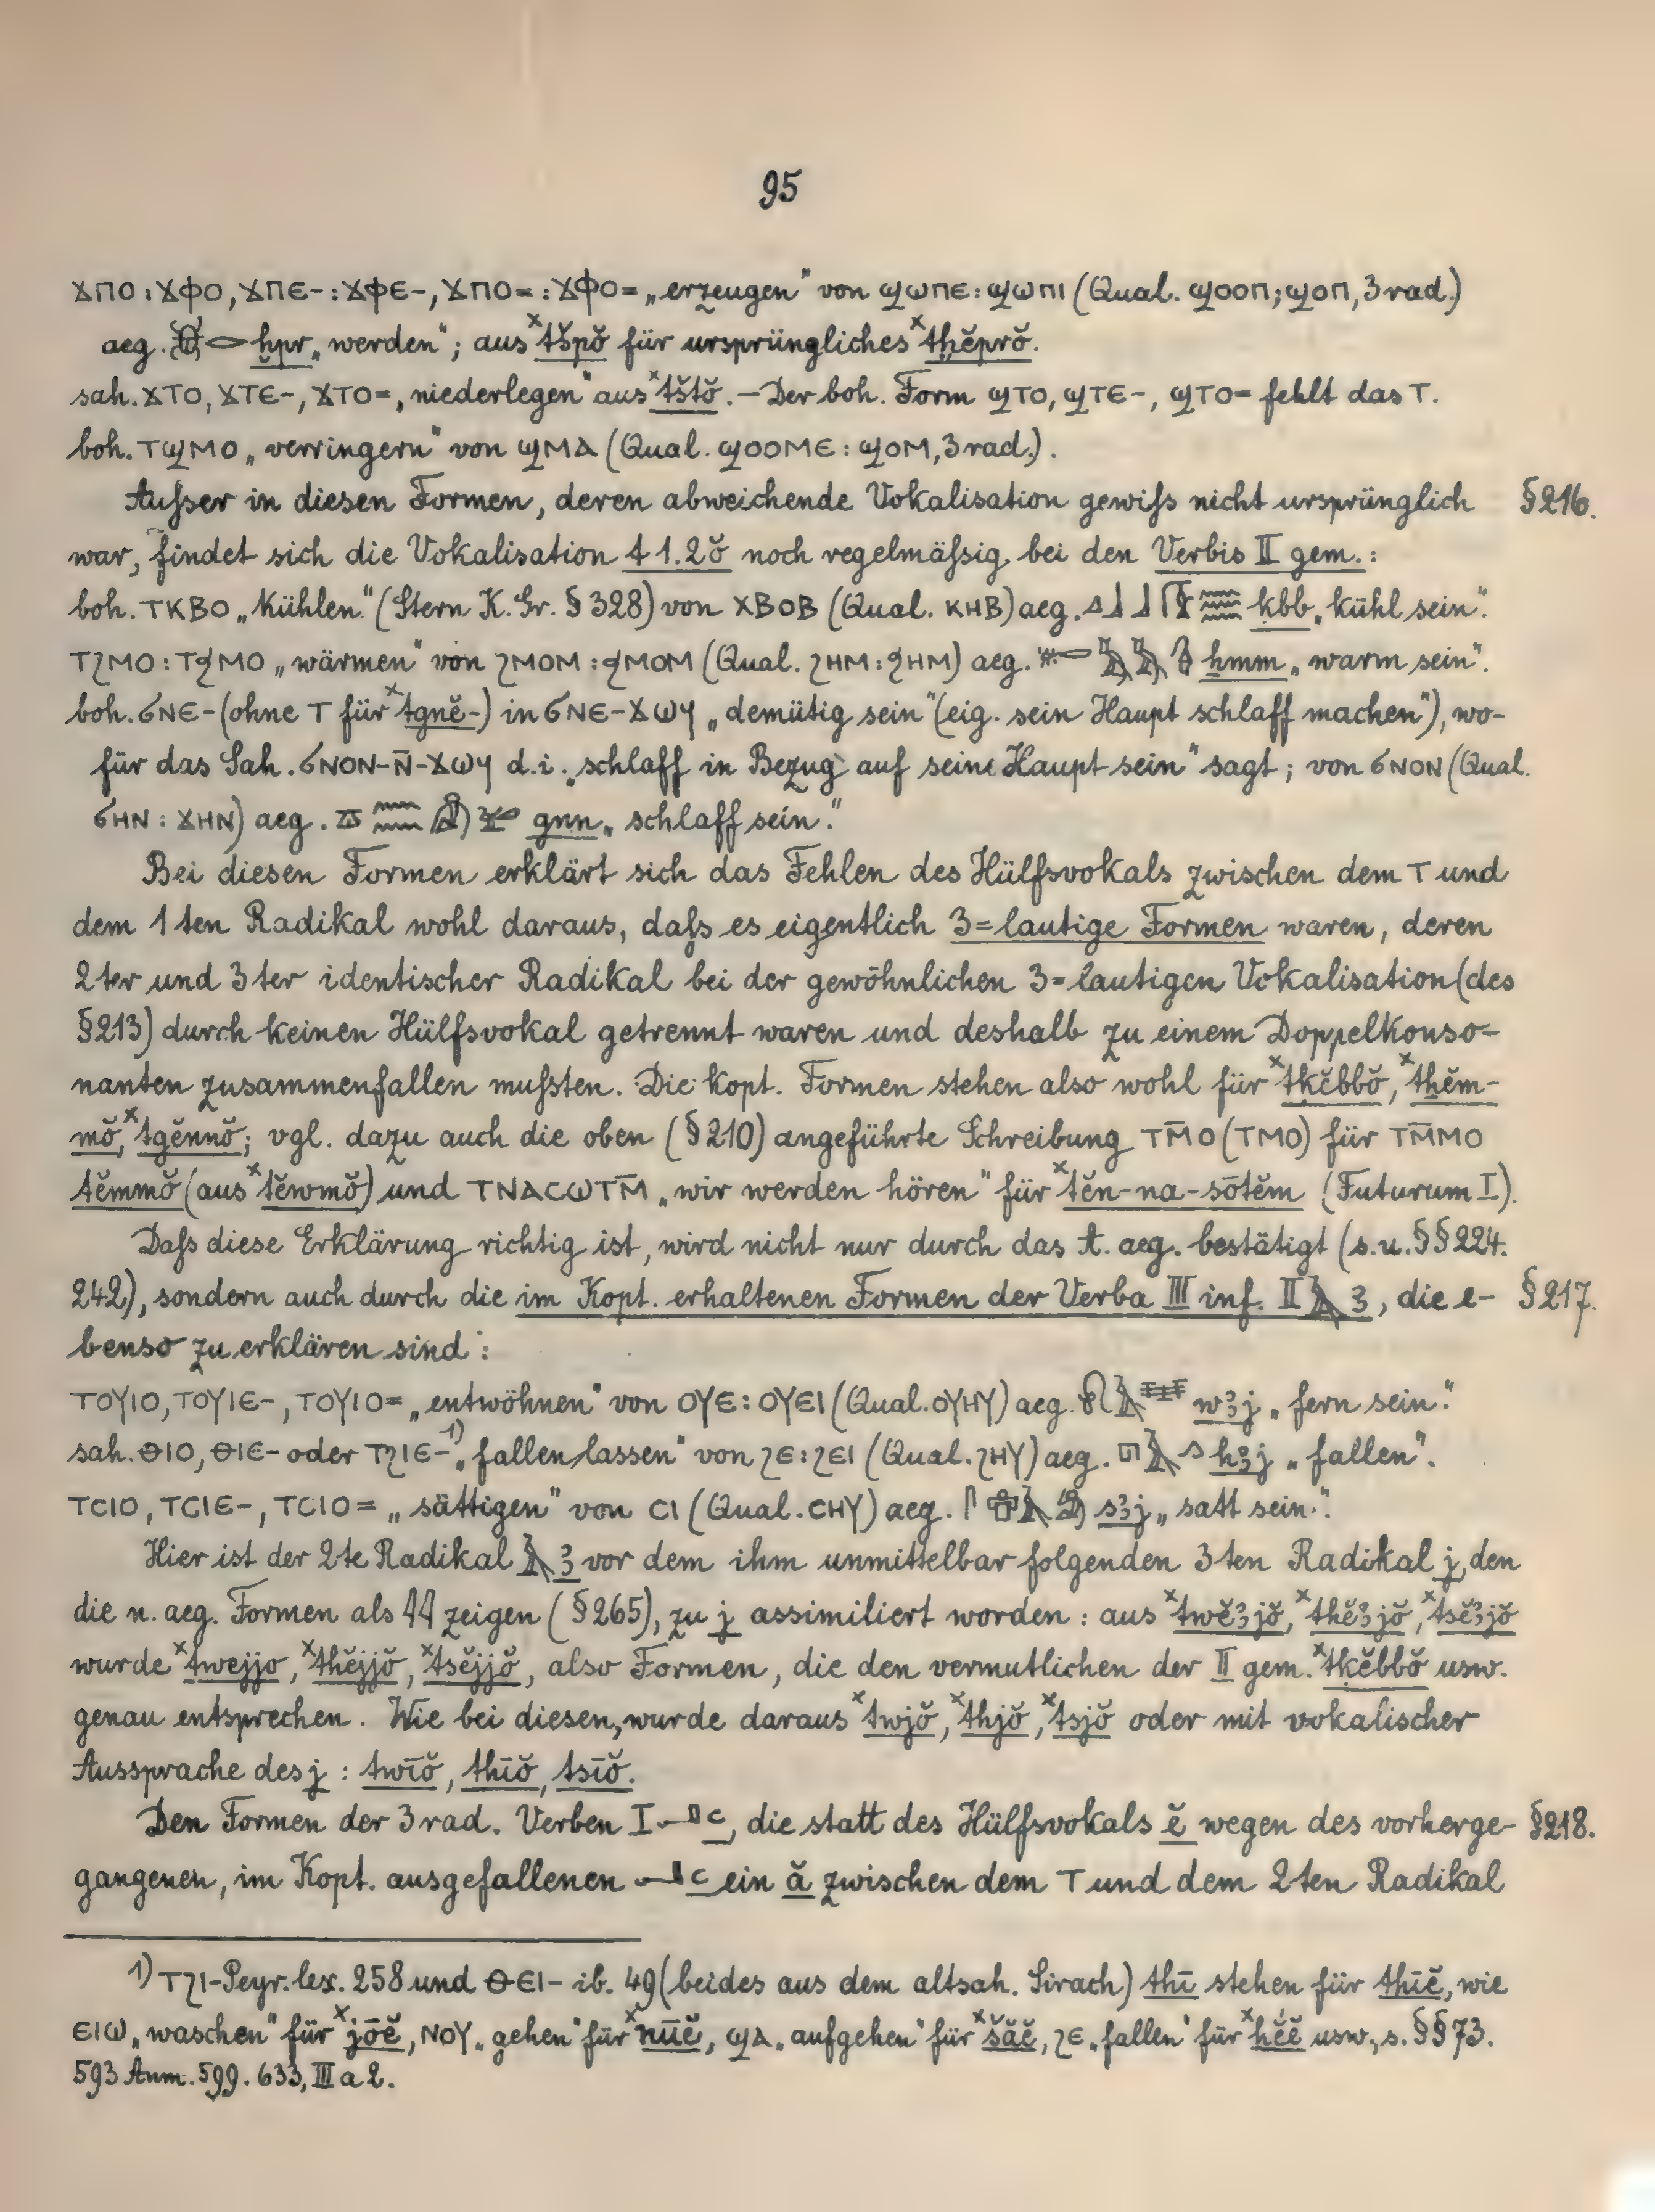 95
ϫⲡⲟ : ϫⲫⲟ, ϫⲡⲉ- : ϫⲫⲉ-, ϫⲡⲟ= : ϫⲫⲟ= „erzeugen“ von ϣⲱⲡⲉ : ϣⲱⲡⲓ (Qual. ϣⲟⲟⲡ; ϣⲟⲡ, 3 rad.)
aeg. 𓆣𓂋 ḫpr „werden“; aus ˣtšpŏ für ursprüngliches ˣtḫĕprŏ.
sah. ϫⲧⲟ, ϫⲧⲉ-, ϫⲧⲟ= „niederlegen“ aus ˣtštŏ. – Der boh. Form ϣⲧⲟ, ϣⲧⲉ-, ϣⲧⲟ= fehlt das ⲧ.
boh. ⲧϣⲙⲟ „verringern“ von ϣⲙⲁ (Qual. ϣⲟⲟⲙⲉ : ϣⲟⲙ, 3 rad.).
Außer in diesen Formen, deren abweichende Vokalisation gewiß nicht ursprünglich §216.
war, findet sich die Vokalisation t 1.2ŏ noch regelmäßig bei den Verbis II gem.:
boh. ⲧⲕⲃⲟ „kühlen“ (Stern K. Gr. § 328) von ⲭⲃⲟⲃ (Qual. ⲕⲏⲃ) aeg. 𓈎𓃀𓃀𓏁𓈗 ḳbb „kühl sein“.
ⲧϩⲙⲟ : ⲧϧⲙⲟ „wärmen“ von ϩⲙⲟⲙ : ϧⲙⲟⲙ (Qual. ϩⲏⲙ : ϧⲏⲙ) aeg. 𓄡𓅓𓅓𓊮 ẖmm „warm sein“.
boh. ϭⲛⲉ- (ohne ⲧ für ˣtgnĕ-) in ϭⲛⲉ-ϫⲱϥ „demütig sein“ (eig. sein Haupt schlaff machen“), wo-
für das Sah. ϭⲛⲟⲛ-ⲛ̄-ϫⲱϥ d. i. „schlaff in Bezug auf seine Haupt sein“ sagt; von ϭⲛⲟⲛ (Qual.
ϭⲏⲛ : ϫⲏⲛ) aeg. 𓎼𓈖𓈖 gnn „schlaff sein“.
Bei diesen Formen erklärt sich das Fehlen des Hülfsvokals zwischen dem ⲧ und
dem 1ten Radikal wohl daraus, daß es eigentlich 3=lautige Formen waren, deren
2ter und 3ter identischer Radikal bei der gewöhnlichen 3=lautigen Vokalisation (des
§213) durch keinen Hülfsvokal getrennt waren und deshalb zu einem Doppelkonso-
nanten zusammenfallen mußten. Die kopt. Formen stehen also wohl für ˣtḳĕbbŏ, ˣtẖĕm-
mŏ, ˣtgĕnnŏ; vgl. dazu auch die oben (§210) angeführte Schreibung ⲧⲙ̄ⲟ (ⲧⲙⲟ) für ⲧⲙ̄ⲙⲟ
tĕmmŏ (aus ˣtĕwmŏ) und ⲧⲛⲁⲥⲱⲧⲙ̄ „wir werden hören“ für ˣtĕn-na-sōtĕm (Futurum I).
Daß diese Erklärung richtig ist, wird nicht nur durch das t. aeg. bestätigt (s. u. §§224.
242), sondern auch durch die im Kopt. erhaltenen Formen der Verba III inf. II 𓄿 ꜣ, die e- §217.
benso zu erklären sind:
ⲧⲟⲩⲓⲟ, ⲧⲟⲩⲓⲉ-, ⲧⲟⲩⲓⲟ= „entwöhnen“ von ⲟⲩⲉ : ⲟⲩⲉⲓ (Qual. ⲟⲩⲏⲩ) aeg. 𓍯𓄿𓈇 wꜣj „fern sein“.
sah. ⲑⲓⲟ, ⲑⲓⲉ- oder ⲧϩⲓⲉ-¹⁾ „fallen lassen“ von ϩⲉ : ϩⲉⲓ (Qual. ϩⲏⲩ) aeg. 𓉔𓄿𓂻 hꜣj „fallen“.
ⲧⲥⲓⲟ, ⲧⲥⲓⲉ-, ⲧⲥⲓⲟ= „sättigen“ von ⲥⲓ (Qual. ⲥⲏⲩ) aeg. 𓋴𓐠𓄿𓀁 sꜣj „satt sein“.
Hier ist der 2te Radikal 𓄿 ꜣ vor dem ihm unmittelbar folgenden 3ten Radikal j, den
die n. aeg. Formen als 𓇌 zeigen (§265), zu j assimiliert worden: aus ˣtwĕꜣjŏ, ˣthĕꜣjŏ, ˣtsĕꜣjŏ
wurde ˣtwejjo, ˣthĕjjŏ, ˣtsĕjjŏ, also Formen, die den vermutlichen der II gem. ˣtḳĕbbŏ usw.
genau entsprechen. Wie bei diesen, wurde daraus ˣtwjŏ, ˣthjŏ, ˣtsjŏ oder mit vokalischer
Aussprache des j : twīŏ, thīŏ, tsīŏ.
Den Formen der 3 rad. Verben I 𓂝 ꜥ, die statt des Hülfsvokals ĕ wegen des vorherge- §218.
gangenen, im Kopt. ausgefallenen 𓂝 ꜥ ein ă zwischen dem ⲧ und dem 2ten Radikal
1) ⲧϩⲓ- Peyr. lex. 258 und ⲑⲉⲓ- ib. 49 (beides aus dem altsah. Sirach) thī stehen für thīĕ, wie
ⲉⲓⲱ „waschen“ für ˣjōĕ, ⲛⲟⲩ „gehen“ für ˣnūĕ, ϣⲁ „aufgehen“ für ˣšăĕ, ϩⲉ „fallen“ für ˣhĕĕ usw., s. §§73.
593 Anm. 599. 633, III a 2.